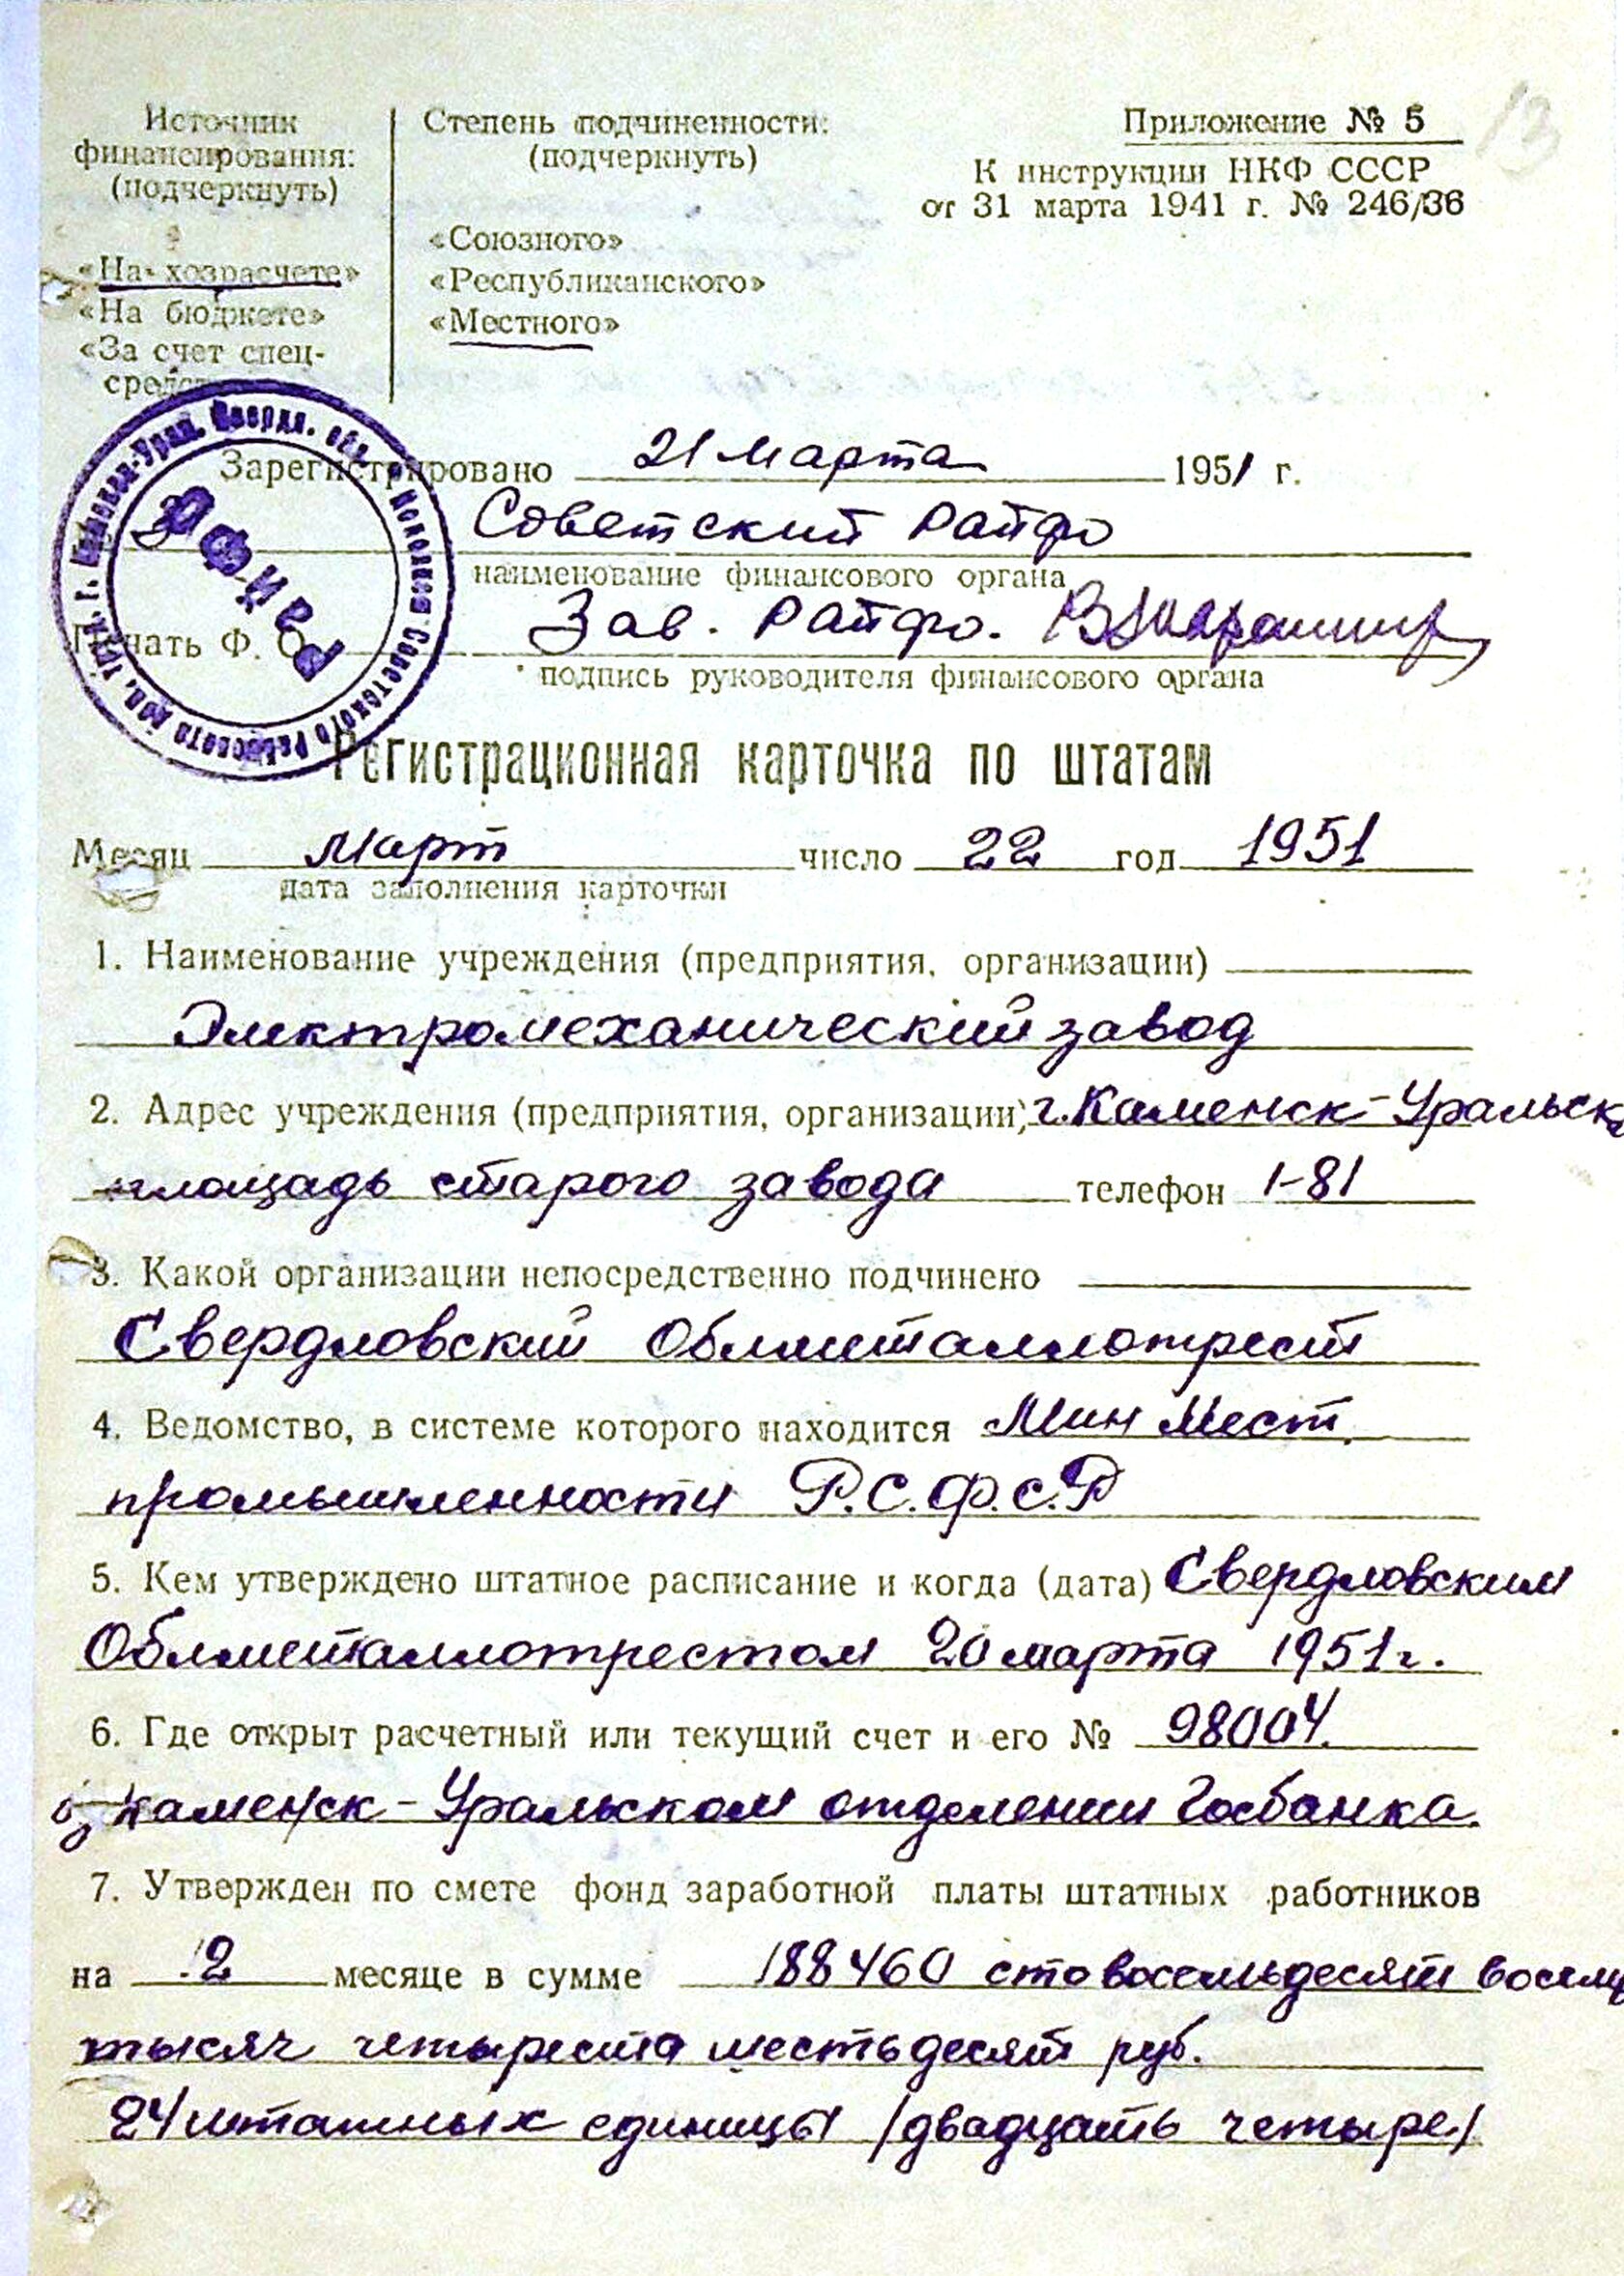 13
Источник
финансирования:
(подчеркнуть)
«На хозрасчете»
«На бюджете»
«За счет спец-
Степень подчиненности:
(подчеркнуть)
«Союзного»
«Республиканского»
«Местного»
Приложение № 5
К инструкции НКФ СССР
от 31 марта 1941 г. № 246/36
Зарегистрировано 21 марта 1951 г.
Советский Райфо
наименование финансового органа
Печать Ф. О. Зав. Райфо.
подпись руководителя финансового органа
РайФО
Регистрационная карточка по штатам
Месяц март число 22 год 1951
дата заполнения карточки
1. Наименование учреждения (предприятия, организации)
Электромеханический завод
2. Адрес учреждения (предприятия, организации) г. Каменск-Уральск
площадь старого завода телефон 1-81
3. Какой организации непосредственно подчинено
Свердловский Облметаллотрест
4. Ведомство, в системе которого находится Мин Мест.
промышленности Р.С.Ф.С.Р
5. Кем утверждено штатное расписание и когда (дата) Свердловским
Облметаллотрестом 20 марта 1951 г.
6. Где открыт расчетный или текущий счет и его № 98004.
Каменск-Уральском отделении Госбанка.
7. Утвержден по смете фонд заработной платы штатных работников
на 2 месяце в сумме 188460 сто восемьдесят восемь
тысяч четыреста шестьдесят руб.
24 штатных единицы /двадцать четыре/